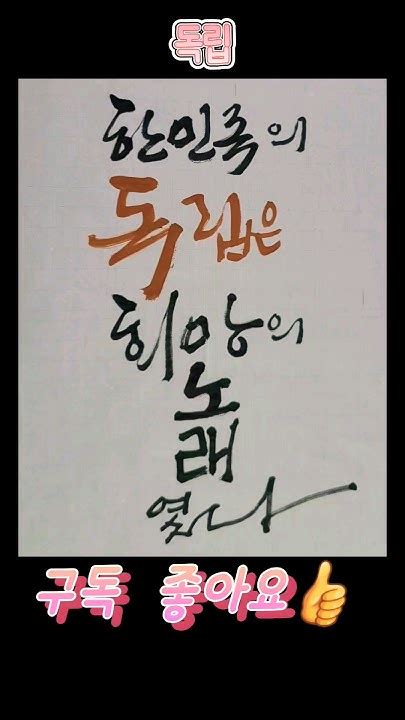 독립
한민족의
독립은
희망의
노
래
였다
구독 좋아요